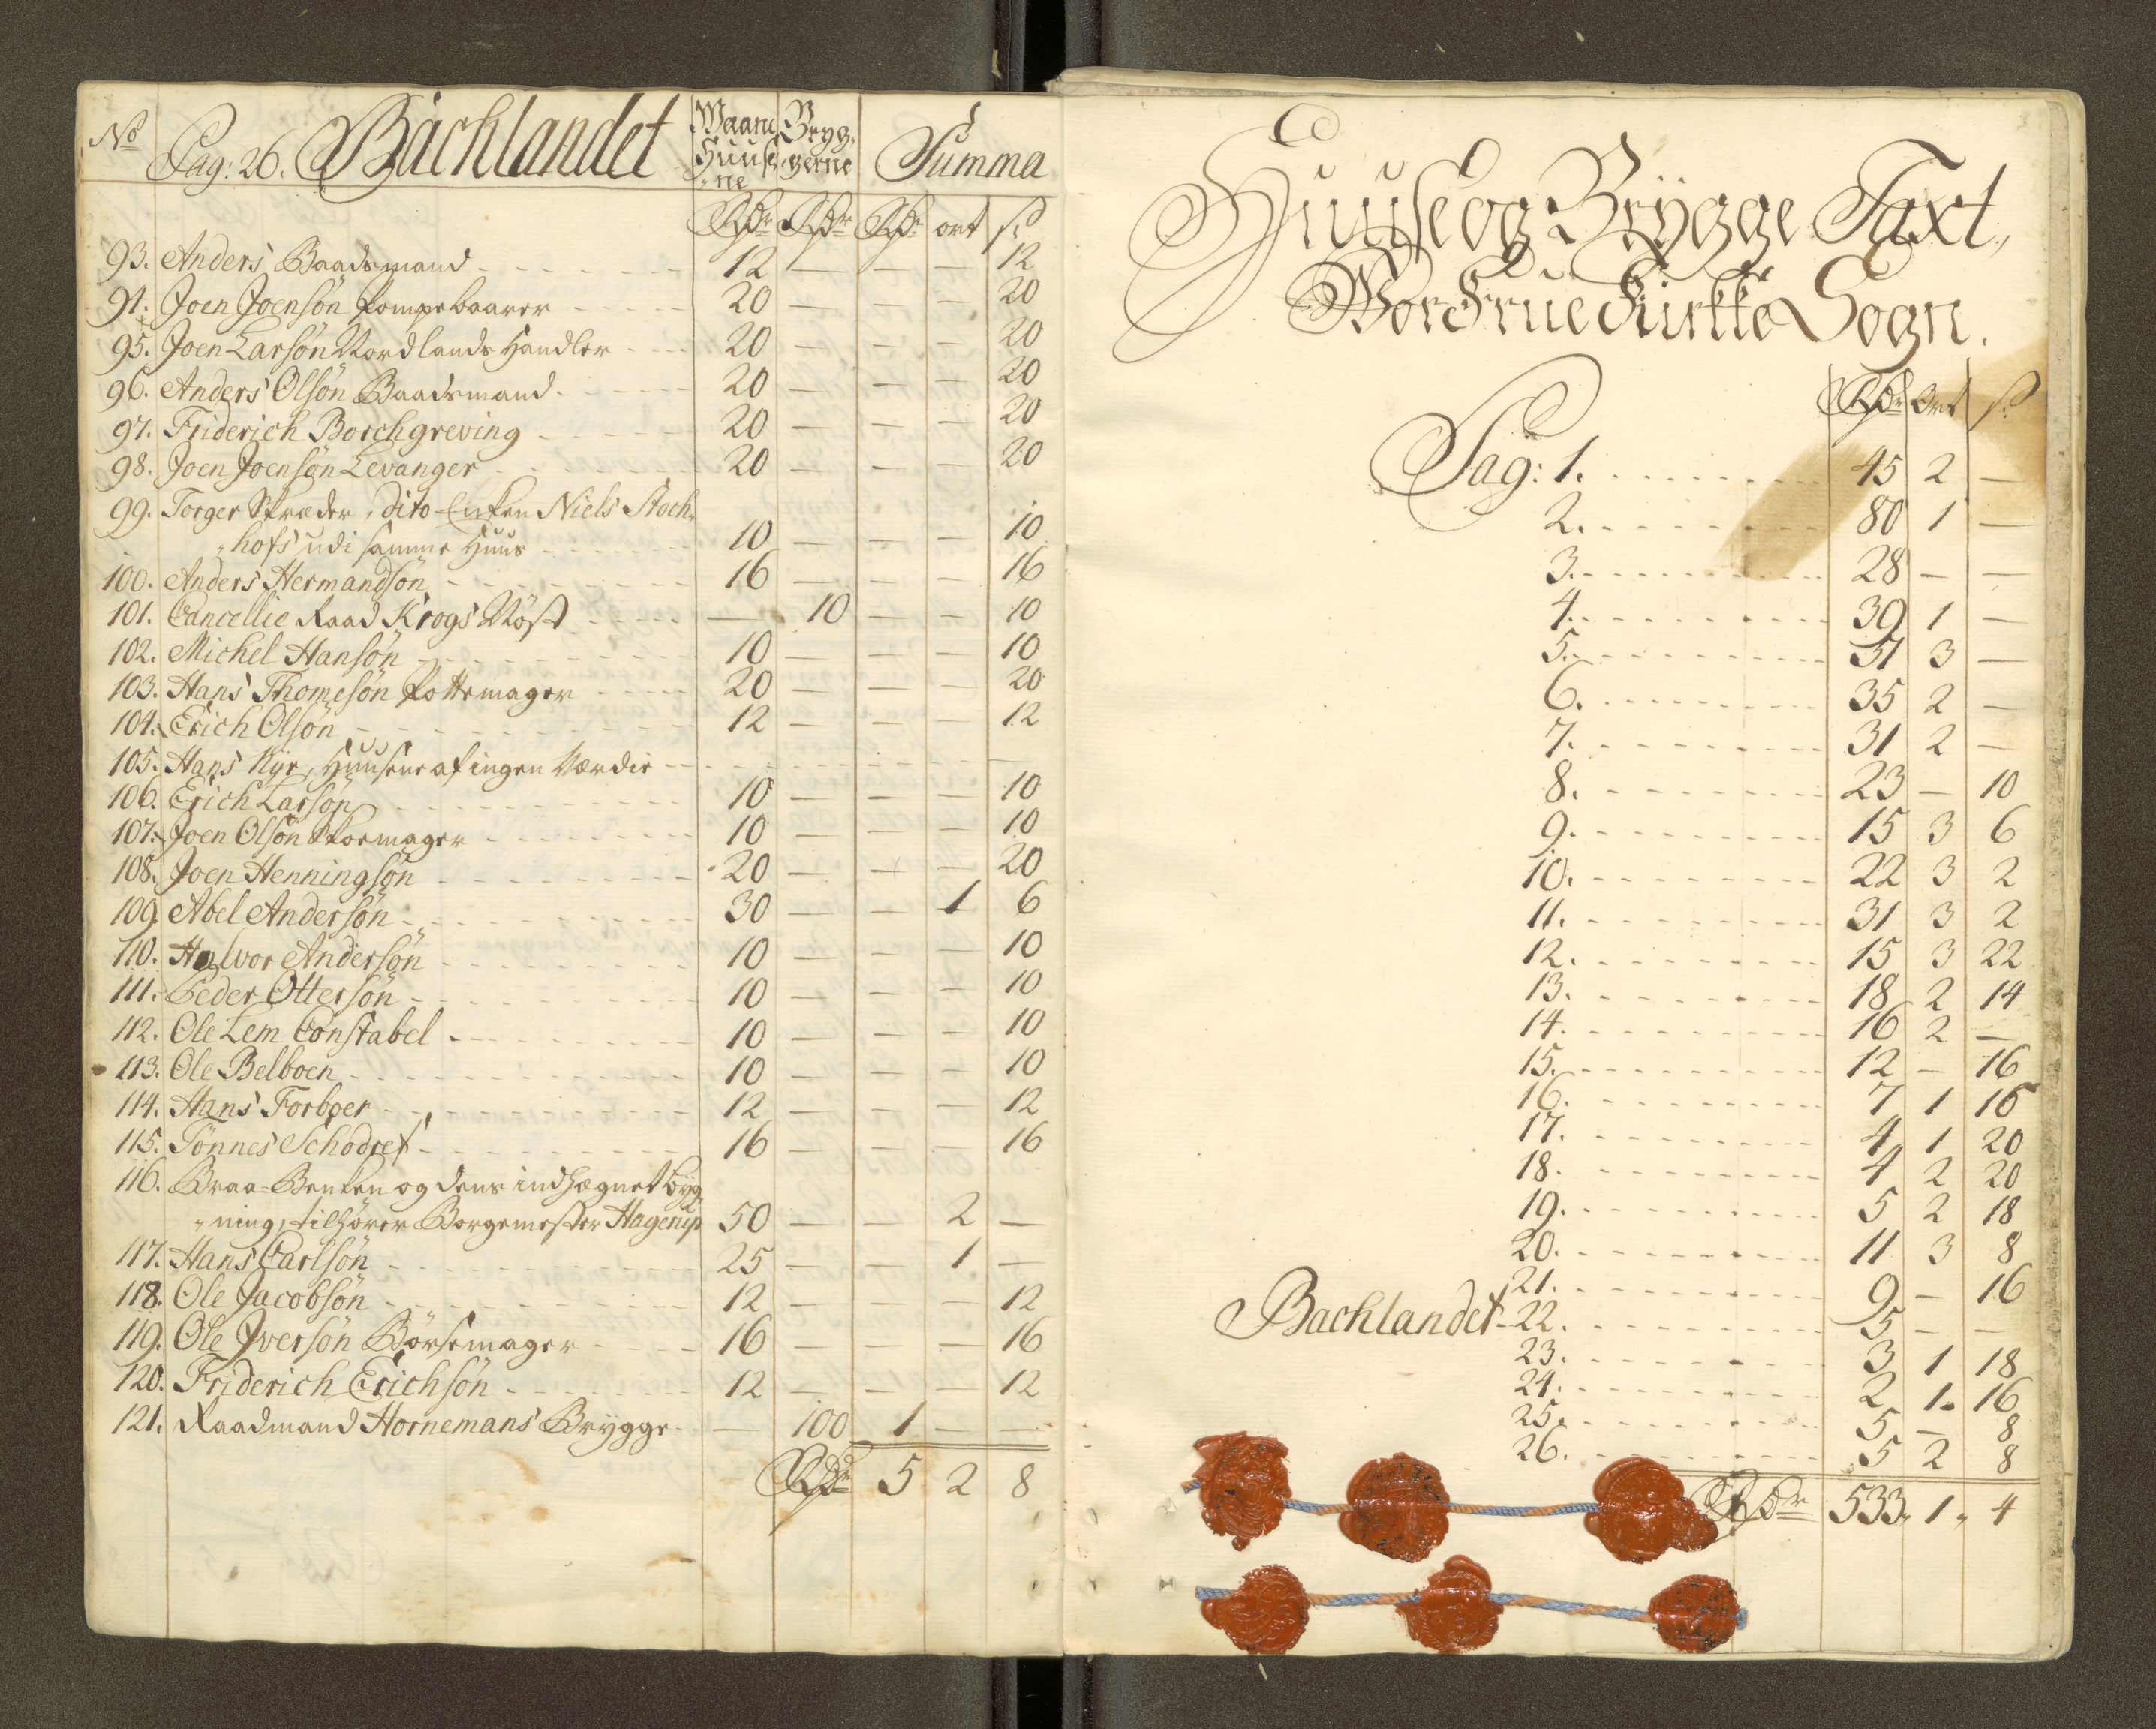 No Pag: 26. Bachlandet Waaning Huuse-ne Bryg-gerne Summa
Rdr Rdr Rdr ort s
93. Anders Baadsmand 12 — — — 12
94. Joen Joensøn Pompebaarer 20 — — — 20
95. Joen Larsøn Nordlands Handler 20 — — — 20
96. Anders Olsøn Baadsmand 20 — — — 20
97. Friderich Borchgreving 20 — — — 20
98. Joen Joensøn Levanger 20 — — — 20
99. Torger Skræder, dito Enken Niels Stoch-
hofs udi samme Huus 10 — — — 10
100. Anders Hermandsøn 16 — — — 16
101. Cancellie Raad Krogs Nøst — 10 — — 10
102. Michel Hansøn 10 — — — 10
103. Hans Thomesøn Pottemager 20 — — — 20
104. Erich Olsøn 12 — — — 12
105. Hans Kyr, Huusene af ingen Værdie
106. Erich Larsøn 10 — — — 10
107. Joen Olsøn Skoemager 10 — — — 10
108. Joen Henningsøn 20 — — — 20
109. Abel Andersøn 30 — — 1 6
110. Halvor Andersøn 10 — — — 10
111. Peder Ottersøn 10 — — — 10
112. Ole Lem Constabel 10 — — — 10
113. Ole Belboen 10 — — — 10
114. Hans Forboer 12 — — — 12
115. Tønnes Schodref 16 — — — 16
116. Braa-Benken og dens indhægnet byg-
ning, tilhører Borgemester Hagerup 50 — — 2 —
117. Hans Carlsøn 25 — — 1 —
118. Ole Jacobsøn 12 — — — 12
119. Ole Iversøn Børsemager 16 — — — 16
120. Friderich Erichsøn 12 — — — 12
121. Raadmand Hornemans Brygge — 100 1 — —
Rdr 5 2 8
Huuse og Brygge Taxt,
Vor Frue Kirkke Sogn.
Rdr Ort s
Pag: 1. 45 2 —
2. 80 1 —
3. 28 — —
4. 39 1 —
5. 51 3 —
6. 35 2 —
7. 31 2 —
8. 23 — 10
9. 15 3 6
10. 22 3 2
11. 31 3 2
12. 15 3 22
13. 18 2 14
14. 16 2 —
15. 12 — 16
16. 7 1 16
17. 4 1 20
18. 4 2 20
19. 5 2 18
20. 11 3 8
21. 9 — 16
Bachlandet 22. 5 — —
23. 3 1 18
24. 2 1. 16
25. 5 — 8
26. 5 2 8
Rdr 533, 1, 4